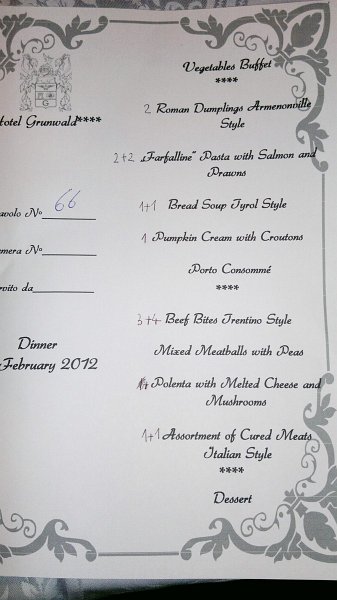 G
Hotel Grunwald****
Tavolo No 66
Camera No
Servito da
Dinner
February 2012
Vegetables Buffet
****
2 Roman Dumplings Armenonville
Style
2+2 „Farfalline" Pasta with Salmon and
Prawns
1+1 Bread Soup Tyrol Style
1 Pumpkin Cream with Croutons
Porto Consommé
****
3+4 Beef Bites Trentino Style
Mixed Meatballs with Peas
Polenta with Melted Cheese and
Mushrooms
1+1 Assortment of Cured Meats
Italian Style
****
Dessert